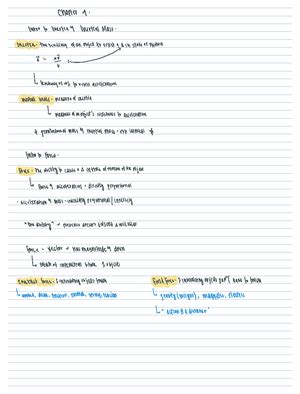 Chapter 4.
Intro to Inertia & Inertial Mass.
Inertia - the tendency of an object to resist a Δ in its state of motion
tendency of obj to resist acceleration
Inertial mass - measure of inertia
measure of an object's resistance to acceleration
* gravitational mass & inertial mass - are identical *
Intro to Force.
Force - The ability to cause a Δ in state of motion of an object
force & acceleration - directly proportional
• acceleration & mass - inversely proportional / inversely
Force - vector → has magnitude & direc
result of interaction btwn 2 objects
Contact force - 2 interacting objects touch
Field force - 2 interacting objects don't need to touch
gravity (weight), magnetic, electric